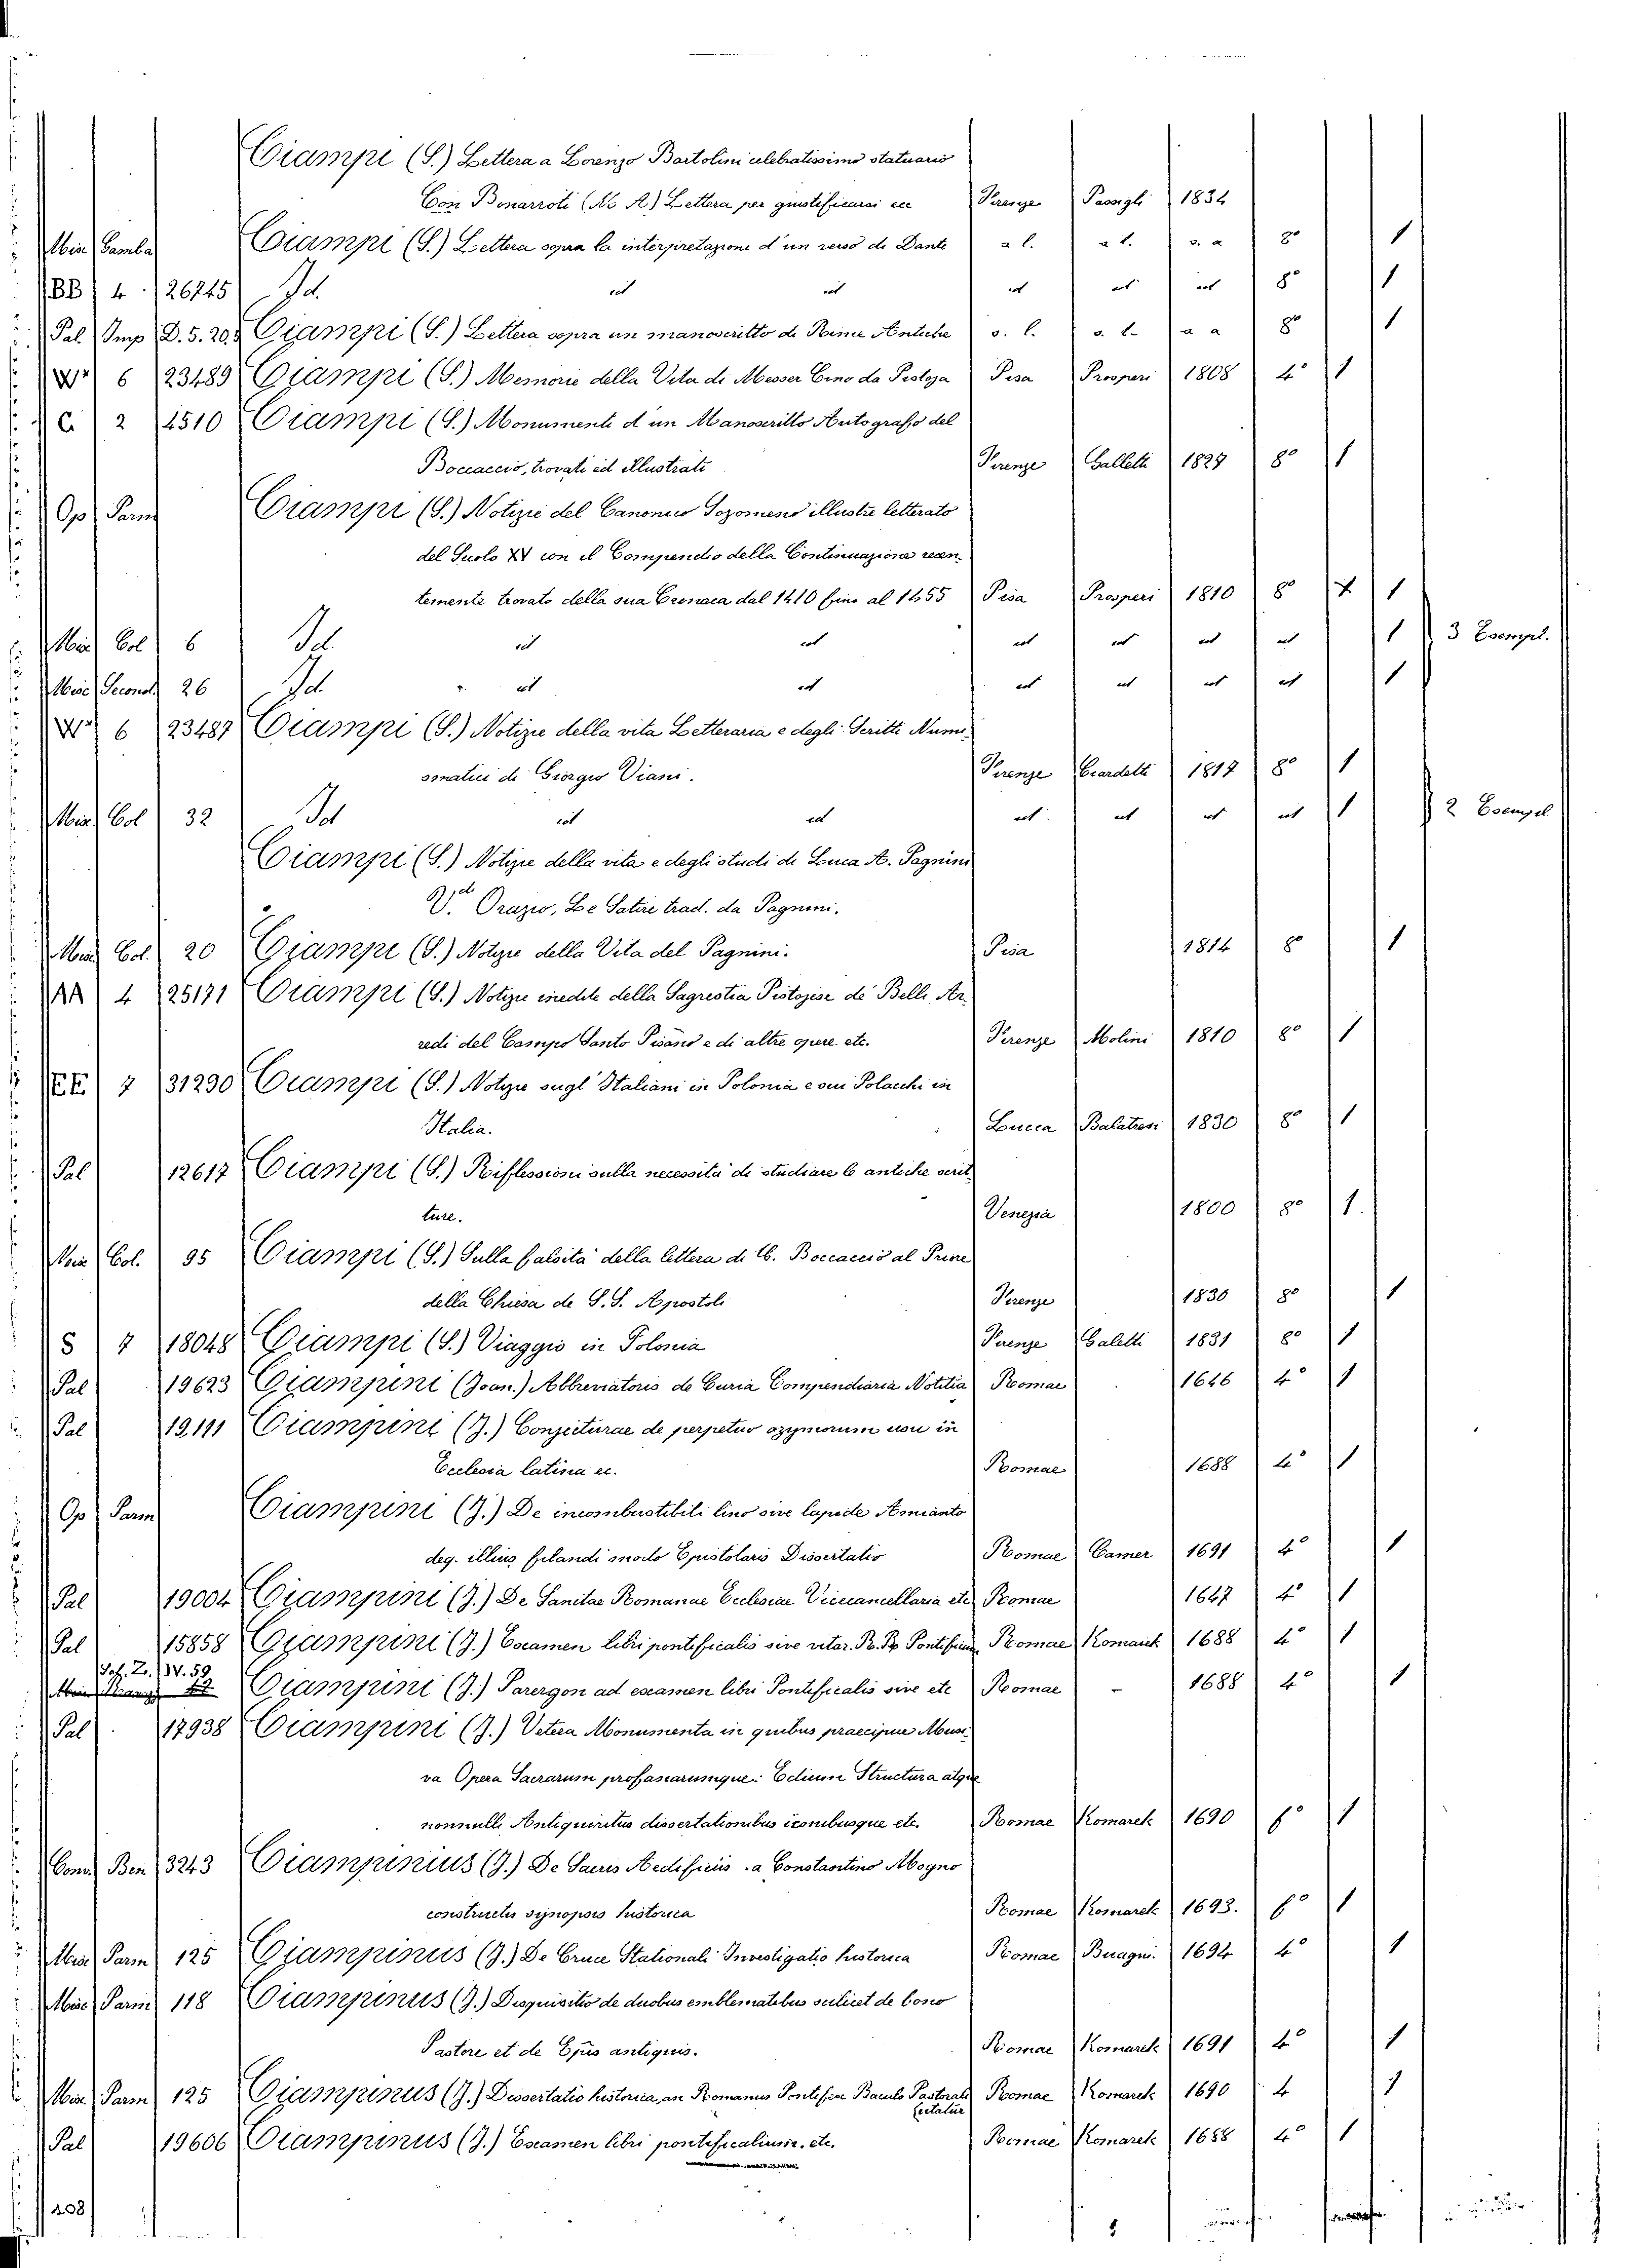 Ciampi (S.) Lettera a Lorenzo Bartolini celebratissimo statuario
Con Bonarroti (No A) Lettera per giustificarsi ec Firenze Passigli 1834
Misc Gamba Ciampi (S.) Lettera sopra la interpretazione d'un verso di Dante s. l. s. t. s. a 8º 1
BB 4 26245 Id. id id id id id 8º 1
Pal. Imp D.5.20.5 Ciampi (S.) Lettera sopra un manoscritto de Rime Antiche s. l. s. t. s a 8º 1
W 6 23489 Ciampi (S.) Memorie della Vita di Messer Cino da Pistoja Pisa Prosperi 1808 4º 1
C 2 4510 Ciampi (S.) Monumenti d'un Manoscritto Autografo del
Boccaccio, trovati ed illustrati Firenze Galletti 1827 8º 1
Op Parm Ciampi (S.) Notizie del Canonico Sozomeno illustre letterato
del Secolo XV con il Compendio della Continuazione recen-
temente trovato della sua Cronaca dal 1410 fino al 1455 Pisa Prosperi 1810 8º X 1
Misc Col 6 Id. id id id id id id 1 3 Esempl.
Misc Second 26 Id. id id id id id id 1
W 6 23487 Ciampi (S.) Notizie della vita Letteraria e degli Scritti Numi-
smatici di Giorgio Viani. Firenze Ciardetti 1817 8º 1
Misc Col 32 Id id id id id id id 1 2 Esempl
Ciampi (S.) Notizie della vita e degli studi di Luca A. Pagnini
V. Orazio, Le Satire trad. da Pagnini.
Misc Col. 20 Ciampi (S.) Notizie della Vita del Pagnini. Pisa 1814 8º 1
AA 4 25171 Ciampi (S.) Notizie inedite della Sagrestia Pistojese de' Belli Ar-
redi del Campo Santo Pisano e di altre opere etc. Firenze Molini 1810 8º 1
EE 7 31290 Ciampi (S.) Notizie sugl'Italiani in Polonia e sui Polacchi in
Italia. Lucca Balatresi 1830 8º 1
Pal 12617 Ciampi (S.) Riflessioni sulla necessità di studiare le antiche scrit-
ture. Venezia 1800 8º 1
Misc Col. 95 Ciampi (S.) Sulla falsità della lettera di G. Boccaccio al Priore
della Chiesa de S.S. Apostoli Firenze 1830 8º 1
S 7 18048 Ciampi (S.) Viaggio in Polonia Firenze Galetti 1831 8º 1
Pal 19623 Ciampini (Joan.) Abbreviatoris de Curia Compendiaria Notitia Romae 1646 4º 1
Pal 19.111 Ciampini (J.) Conjecturae de perpetuo azymorum usu in
Ecclesia latina ec. Romae 1688 4º 1
Op Parm Ciampini (J.) De incombustibili lino sive lapide Amianto
deq. illius filandi modo Epistolaris Dissertatio Romae Camer 1691 4º 1
Pal 19004 Ciampini (J.) De Sanctae Romanae Ecclesiae Vicecancellaria etc Romae 1647 4º 1
Pal 15858 Ciampini (J.) Examen libri pontificalis sive vitar. R. R. Pontificum Romae Komarek 1688 4º 1
IV. 59 Ciampini (J.) Parergon ad examen libri Pontificalis sive etc Romae - 1688 4º 1
Pal 17938 Ciampini (J.) Vetera Monumenta in quibus praecipue Musi-
va Opera Sacrarum profanarumque Edium Structura atque
nonnulli Antiquiritus dissertationibus iconibusque etc. Romae Komarek 1690 fº 1
Conv Ben 3243 Ciampinius (J.) De Sacris Aedificiis a Constantino Magno
constructis synopsis historica Romae Komarek 1693. fº 1
Misc Parm 125 Ciampinus (J.) De Cruce Stationali Investigatio historica Romae Buagni. 1694 4º 1
Misc Parm 118 Ciampinus (J.) Disquisitio de duobus emblematibus scilicet de bono
Pastore et de Ejus antiquis. Romae Komarek 1691 4º 1
Misc Parm 125 Ciampinus (J.) Dissertatio historica, an Romanus Pontifex Baculo Pastorali Romae Komarek 1690 4 1
Pal 19606 Ciampinus (J.) Examen libri pontificalium. etc. Romae Komarek 1688 4º 1
208